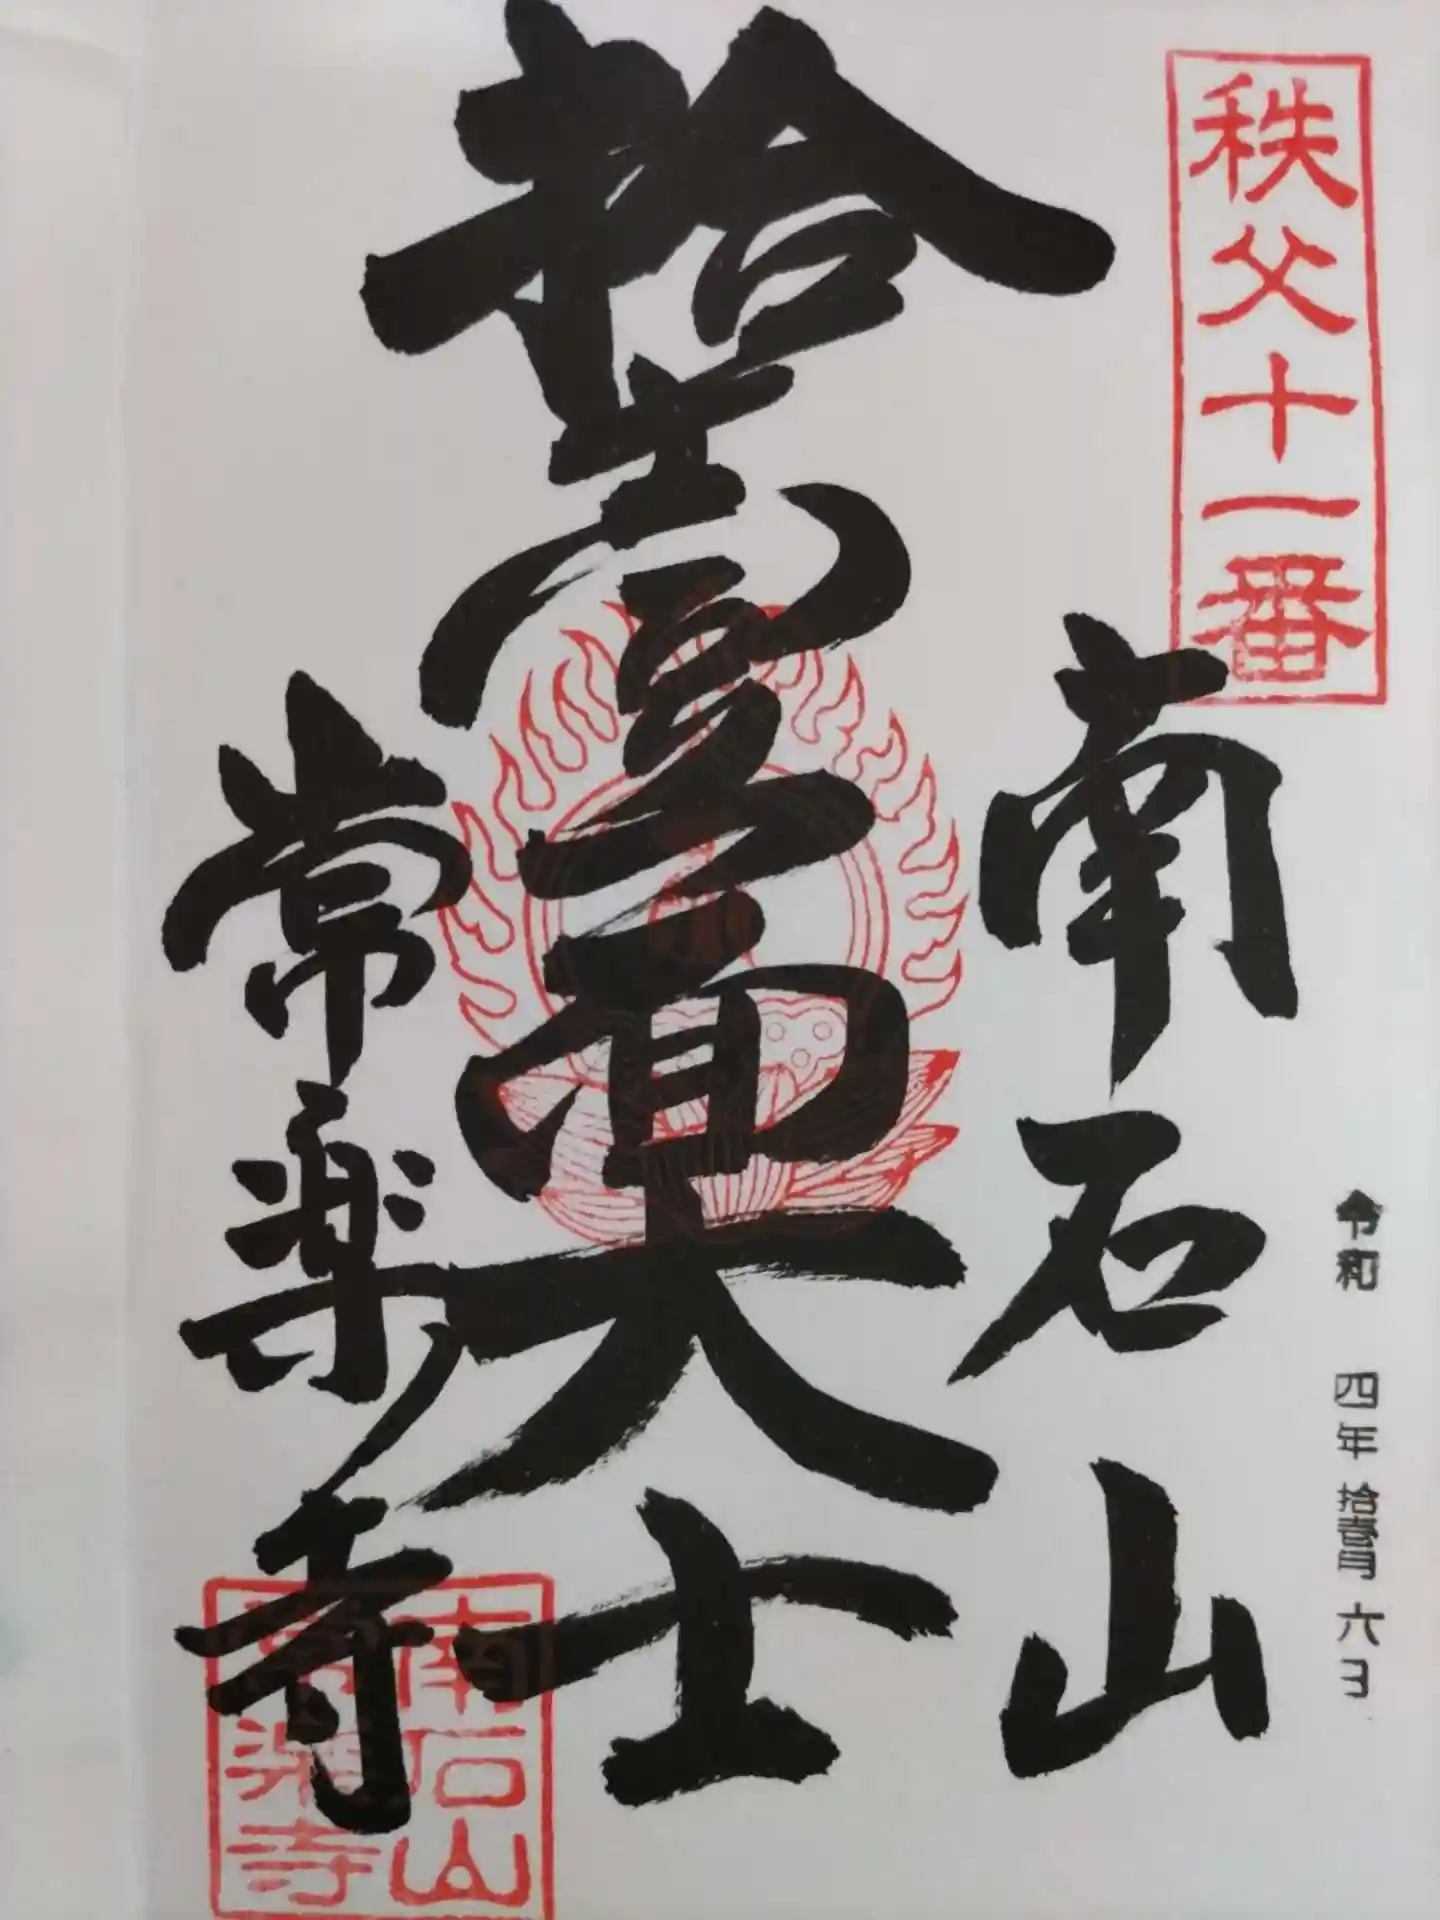 秩父十一番
令和 四年 拾壹月 六日
南石山
拾壹面大士
常楽寺
南石山
常楽寺